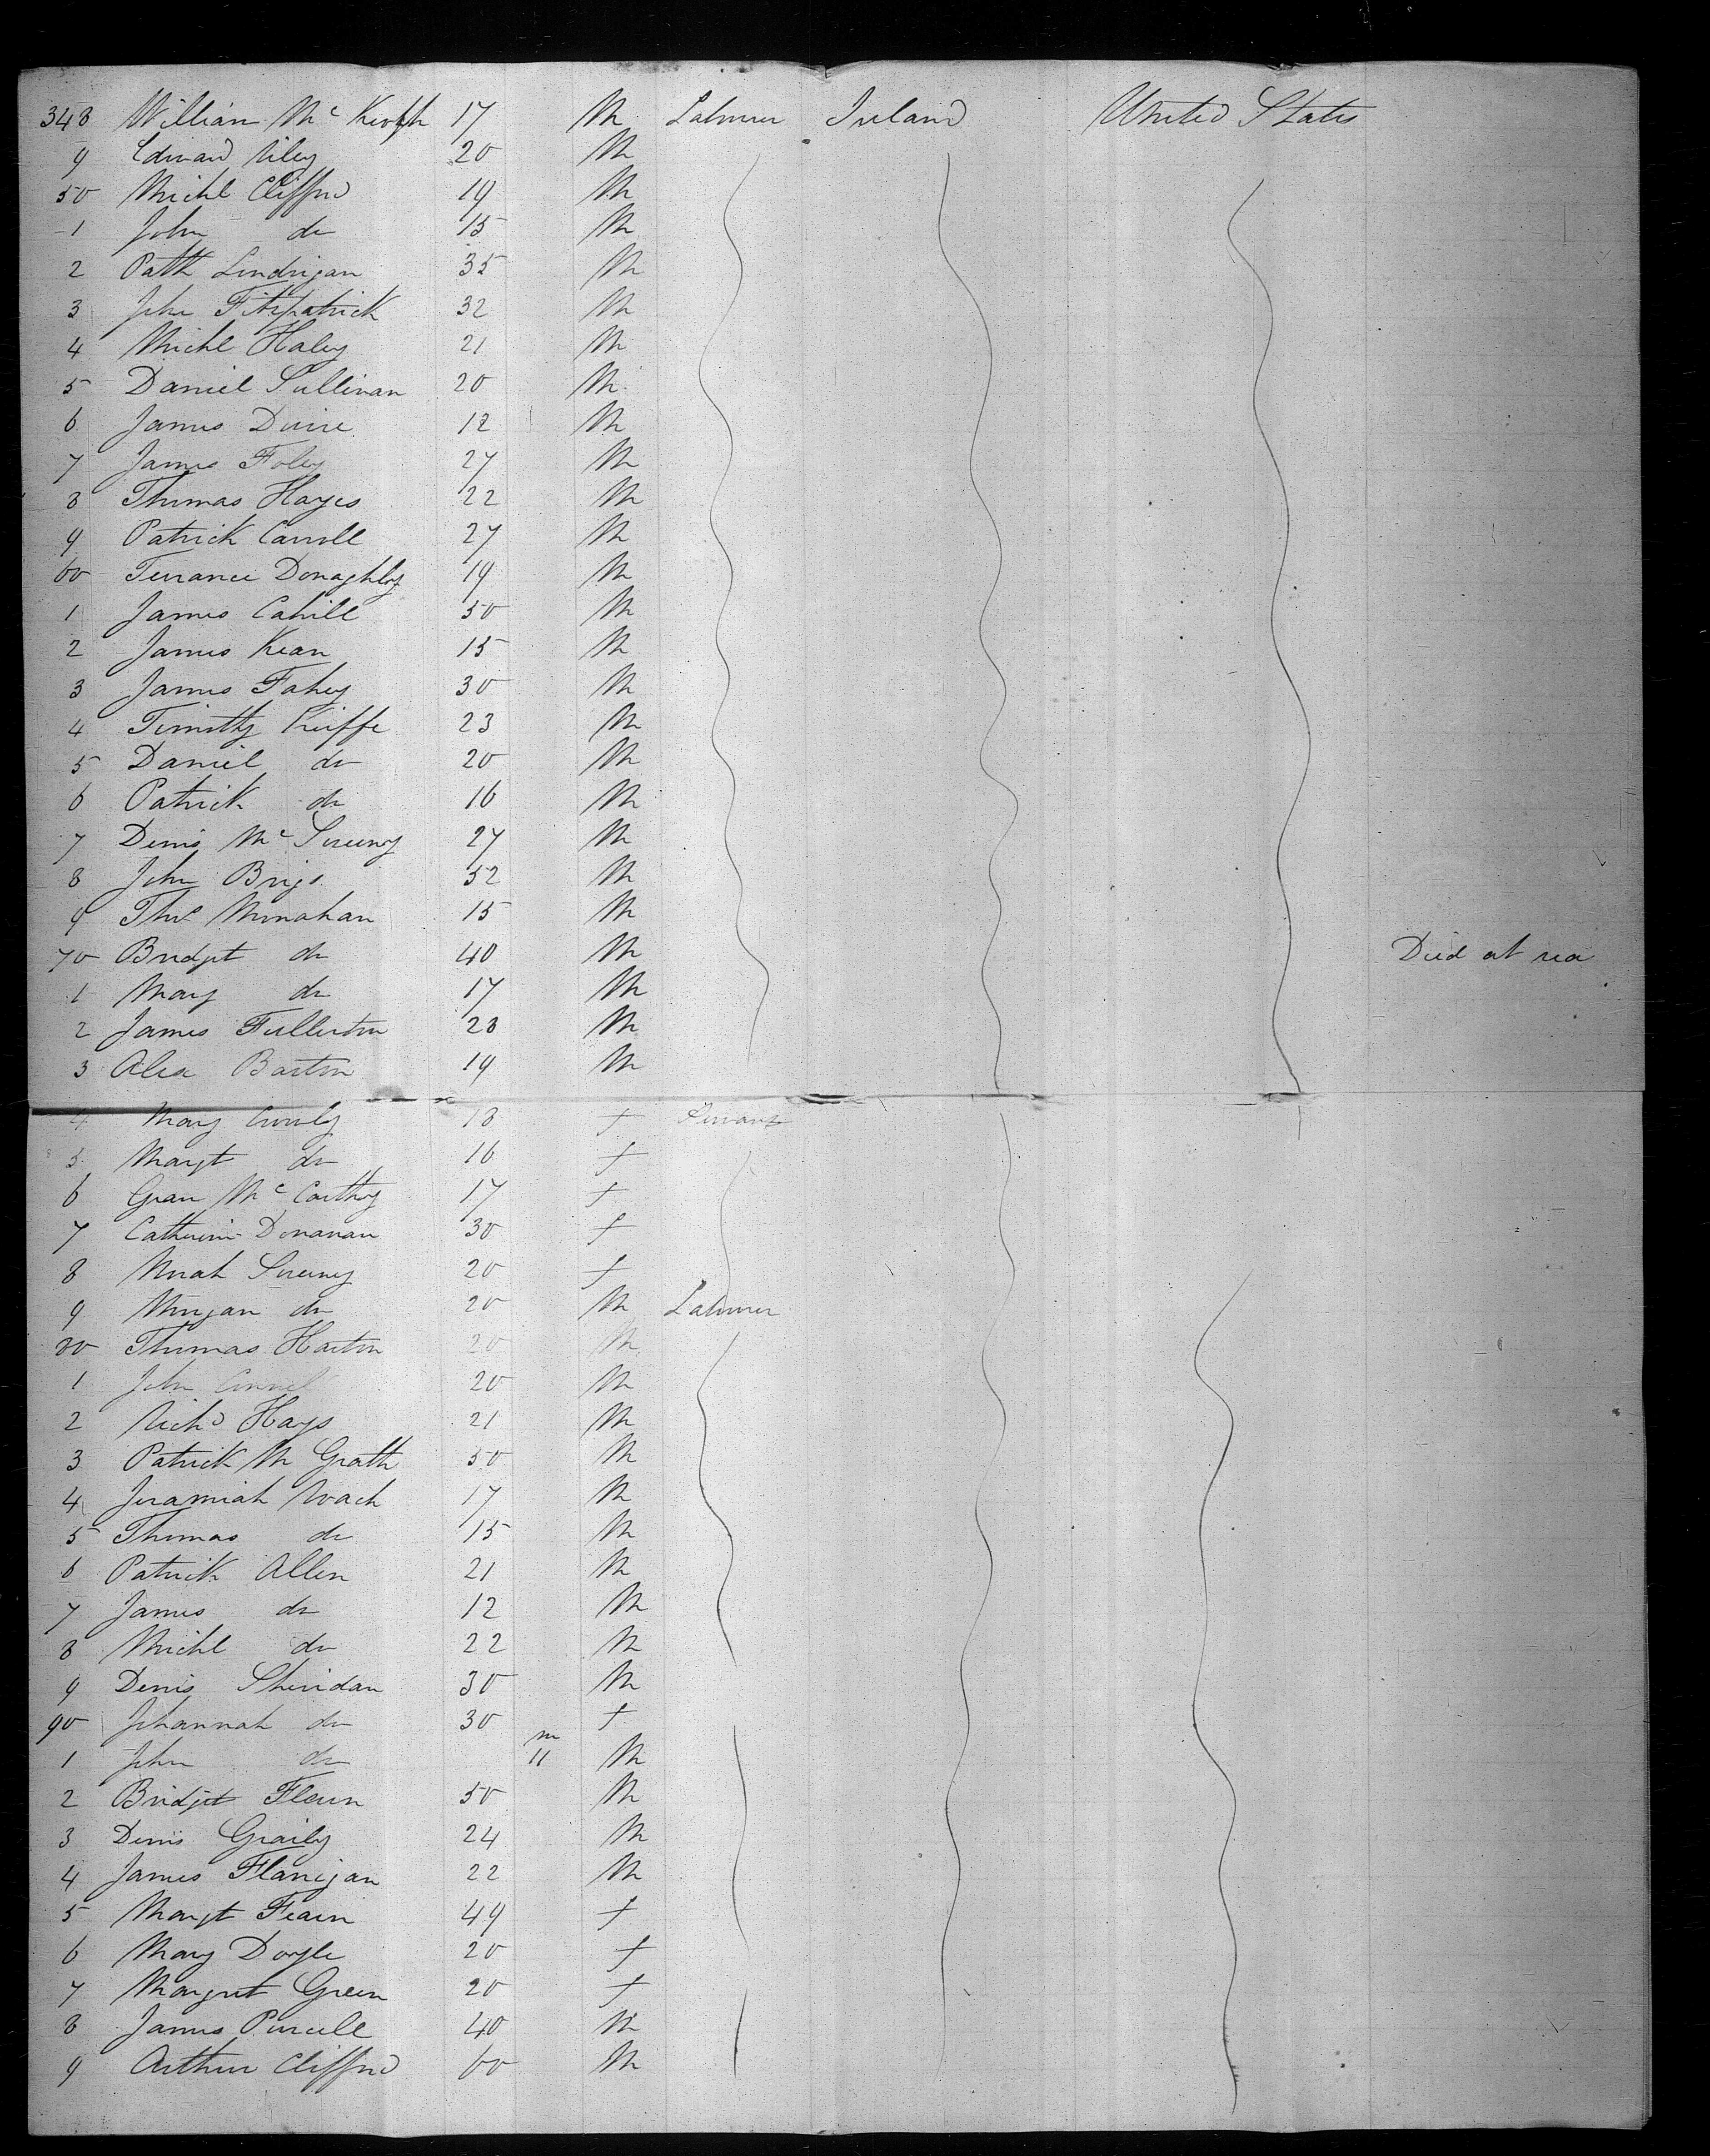 348 William Mc Keogh 17 M Labourer Ireland United States
9 Edward Riley 20 M
50 Michl Clifford 19 M
1 John do 15 M
2 Patk Londrigan 35 M
3 John Fitzpatrick 32 M
4 Michl Haley 21 M
5 Daniel Sullivan 20 M
6 James Dwire 12 M
7 James Foley 27 M
8 Thomas Hayes 22 M
9 Patrick Carroll 27 M
60 Terrance Donaghhy 19 M
1 James Cahill 50 M
2 James Kean 15 M
3 James Fahey 30 M
4 Timothy Kieffe 23 M
5 Daniel do 20 M
6 Patrick do 16 M
7 Denis Mc Sweeny 27 M
8 John Brigs 52 M
9 Thos Monahan 15 M
70 Bridget do 40 M Died at sea
1 Mary do 17 M
2 James Fullerton 28 M
3 Alex Barton 19 M
4 Mary 18 f Servant
5 Margt do 16 f
6 Mc Carthy 17 f
7 Catherine Donavan 30 f
8 Norah Sweeny 20 f
9 Morgan do 20 M Labourer
80 Thomas Horton 20 M
1 John Connel 20 M
2 Richd Hays 21 M
3 Patrick M Grath 50 M
4 Jeramiah Roach 17 M
5 Thomas do 15 M
6 Patrick Allen 21 M
7 James do 12 M
8 Michl do 22 M
9 Denis Sheridan 30 M
90 Johannah do 30 f
1 John do m 11 M
2 Bridget 50 M
3 Denis Graily 24 M
4 James Flanigan 22 M
5 Margt 49 f
6 Mary Doyle 20 f
7 Margret Green 20 f
8 James Purcell 40 M
9 Arthur Clifford 60 M